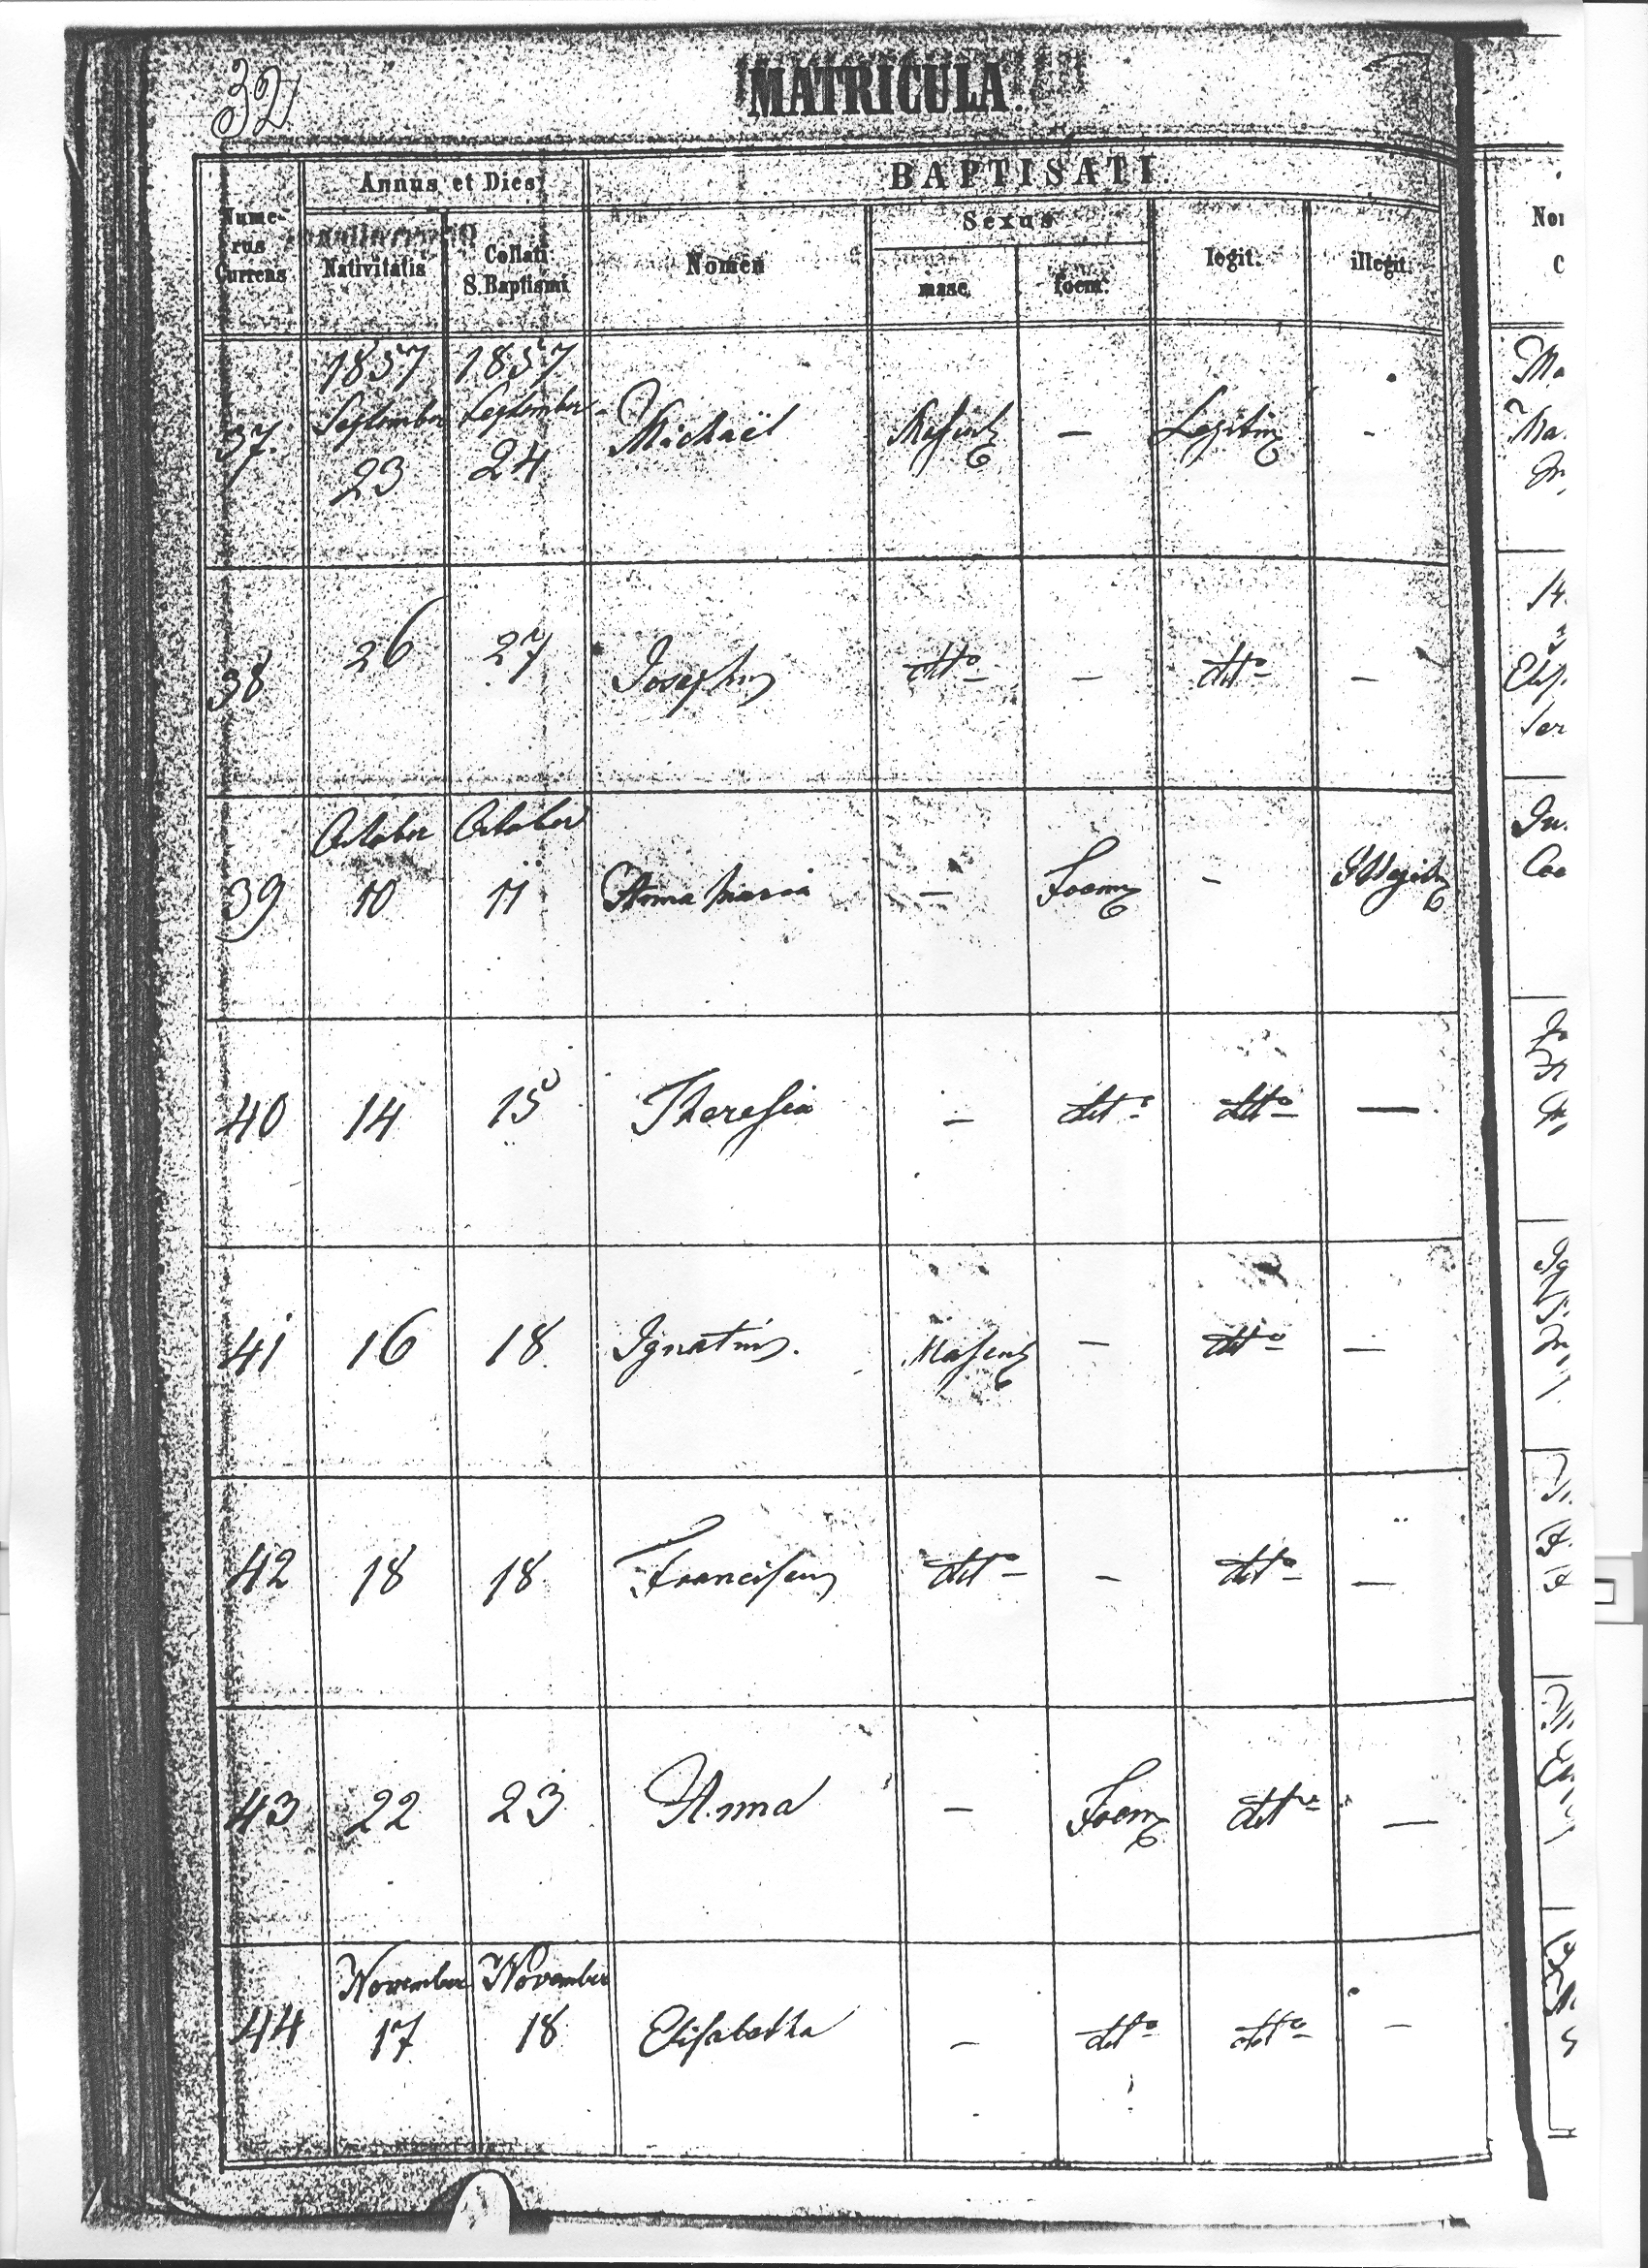 32
MATRICULA
Annus et Dies
BAPTISATI.
Nume-
rus
Currens
Nativitatis
Collati
S. Baptismi
Nomen
Sexus
masc.
foem.
legit.
illegit.
1857 1857
September September
37. 23 24 Michaël Mascul — Legitim -
38 26 27 Josephus ditto — ditto —
October October
39 10 11 Anna Maria — Foem - Illegit
40 14 15 Theresia — ditto ditto —
41 16 18 Ignatius. Mascul — ditto —
42 18 18 Franciscus ditto — ditto —
43 22 23 Anna — Foem ditto —
November November
44 17 18 Elisabetha — ditto ditto —